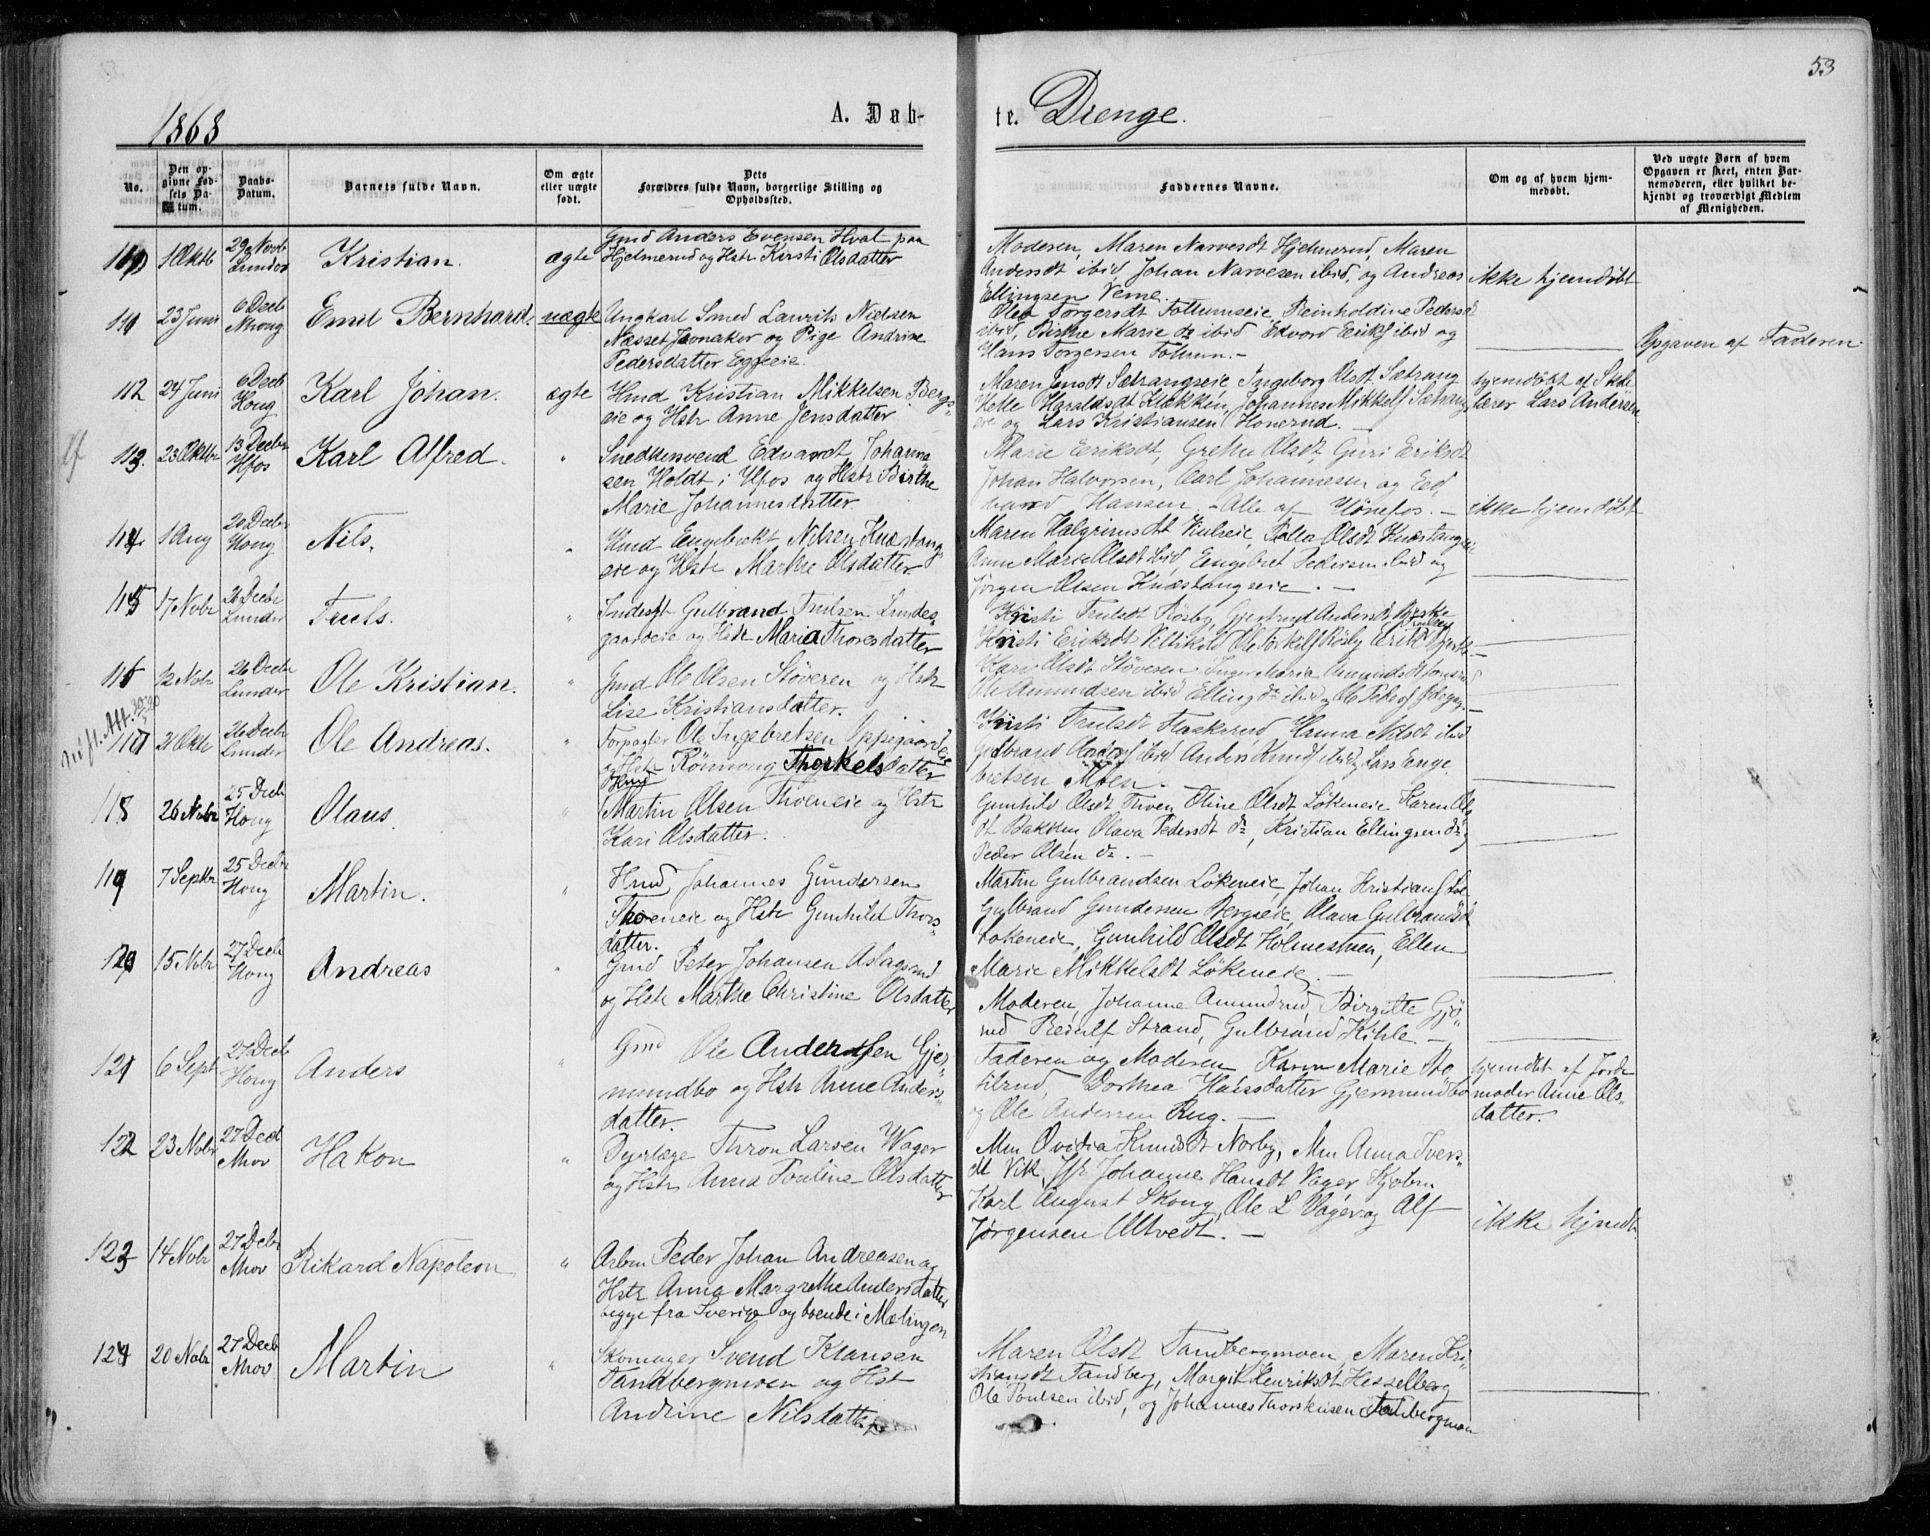 53
1868
A. Døb-
te. Drenge.
No.
Den op-
givne Fød-
sels Da-
tum.
Daabs-
Datum.
Barnets fulde Navn.
Om ægte
eller uægte
født.
Dets
Forældres fulde Navn, borgerlige Stilling og
Opholdssted.
Faddernes Navne.
Om og af hvem hjem-
medøbt.
Ved uægte Børn af hvem
Opgaven er skeet, enten Bar-
nemoderen, eller hvilket be-
kjendt og troværdigt Medlem
af Menigheden.
1 Oktb
29 Novb
Lunder
Kristian.
ægte
Gmd Anders Evensen Hval paa
Hjelmerud og Hstr Kirsti Olsdatter
Moderen, Maren Narvesdt Hjelmerud, Maren
Andersdt ibid, Johan Narvesen ibid, og Andreas
Ellingsen Veme.
ikke hjemdøbt
23 Juni
6 Decb
Emil Bernhard.
uægte
Ungkarl Smed Laurits Nielsen
Næsset Jevnaker og Pige Andrine
Pedersdatter Eggeeie.
Olea Torgersdt Tollumseie, Reinholdine Pedersd
ibid, Birthe Marie do ibid, Edvard Eriks ibid og
Hans Torgersen Tolumn.-
Opgaven af Faderen
112
24 Juni
6 Decb
Hong
Karl Johan.
ægte
Hmd Kristian Mikkelsen Bergs-
eie og Hstr Anne Jensdatter
Maren Jensdt Sætrangseie, Ingeborg Olsdt Sætrang
Helle Haraldsdt Klækken, Johannes Mikkels Sætrangs
eie og Lars Kristiansen Honerud.
hjemdøbt af Skole
lærer Lars Andersen
113.
23 Oktbr
13 Decbr
Hfos
Karl Alfred.
"
Snedkersvend Edvardt Johanne-
sen Holdt i Hfos og Hstr Birthe
Marie Johannesdatter
Marie Eriksdt, Grethe Olsdt, Guri Eriksdt
Johan Halvorsen, Carl Johannesen og Ed-
vard Hansen - Alle af Hönefos. -
ikke hjemdøbt
114.
1 Aug
20 Decbr
Hong
Nils.
"
Hmd Engebrekt Nilsen Knæstang-
eie og Hstr Marthe Olsdatter
Anne Marie Olsdt ibid, Engebret Pedersen ibid og
Jørgen Olsen Knæstangseie. -
115
17 Nobr
26 Decbr
Lunder
Truls.
"
Inderst Gulbrand Trulsen Lundes-
gaardeie og Hstr Maria Thoresdatter
116
12 Nobr
26 Decbr
Lunder
Ole Kristian.
"
Gmd Ole Olsen Støveren og Hstr
Lise Kristiansdatter.
117
21 Oktb
26 Decbr
Lunder
Ole Andreas.
"
Forpagter Ole Ingebretsen Oppegaardeie
og Hstr Rönnong Thorkelsdatter
bretsen Moen -
118
26 Nobr
25 Decb
Hong
Olaus.
"
Hmd
Martin Olsen Thoeneie og Hstr
Kari Olsdatter.
Gunhild Olsdt Thoen, Oline Olsdt Lökeneie, Karen Ols
dt Bakken, Olava Pedersdt do, Kristian Ellingsen do og
Peder Olsen do. -
119
7 Septbr
25 Decbr
Hong
Martin.
"
Hmd Johannes Gundersen
Thoeneie og Hstr Gunhild Thors-
datter.
Martin Gulbrandsen Lökeneie, Johan Kristians do
Gulbrand Gundersen Bergseie, Olava Gulbrandsdt
Lokeneie, Gunhild Olsdt Holmestuen, Ellen
Marie Mikkelsdt Lökeneie. -
120
15 Nobr
27 Decb
Hong
Andreas
"
Gmd Peter Johansen Aslagsrud
og Hstr Marthe Christine Olsdatter
Moderen, Johanne Amundrud, Birgitte Gjö-
rud Reiulf Strand, Gulbrand Kihle. -
121
6 Sept
27 Decb
Hong
Anders
"
Gmd Ole Anderssen Gjer-
mundbo og Hstr Anne Anders-
datter.
Faderen og Moderen Karen Marie Sto
tilrud, Dorthea Hansdatter Gjermundbo
og Ole Andersen Rug. -
hjemdbt af Jorde
moder Anne Ols-
datter.
122
23 Nobr
27 Decb
Nhov
Hakon
"
Dyrlæge Thron Larsen Wager
og Hstr Anna Pouline Olsdatter
Mm Ovidia Knudsdt Norby, Mm Anna Ivers-
dt Vik, Jfr Johanne Hansdt Vager, Kjøbm
Karl August Skong, Ole L Vager og Alf
Jørgensen Ultvedt. -
ikke hjemdt
123
14 Nobr
27 Debr
Nhov
Rikard Napoleon
"
Arbm Peder Johan Andreasen og
Hstr Anna Margrethe Andersdatter
begge fra Sverige og boende i Mælingen
124
20 Nobr
27 Decb
Nhov
Martin
"
Skomager Svend Klausen
Tandbergmoen og Hst
Andrine Nilsdatter
Maren Olsdt Tandbergmoen, Maren Kri-
stiansdt Tandberg, Margit Henriksdt Hesselberg
Ole Poulsen ibid, og Johannes Thorstensen Tanbergmoen